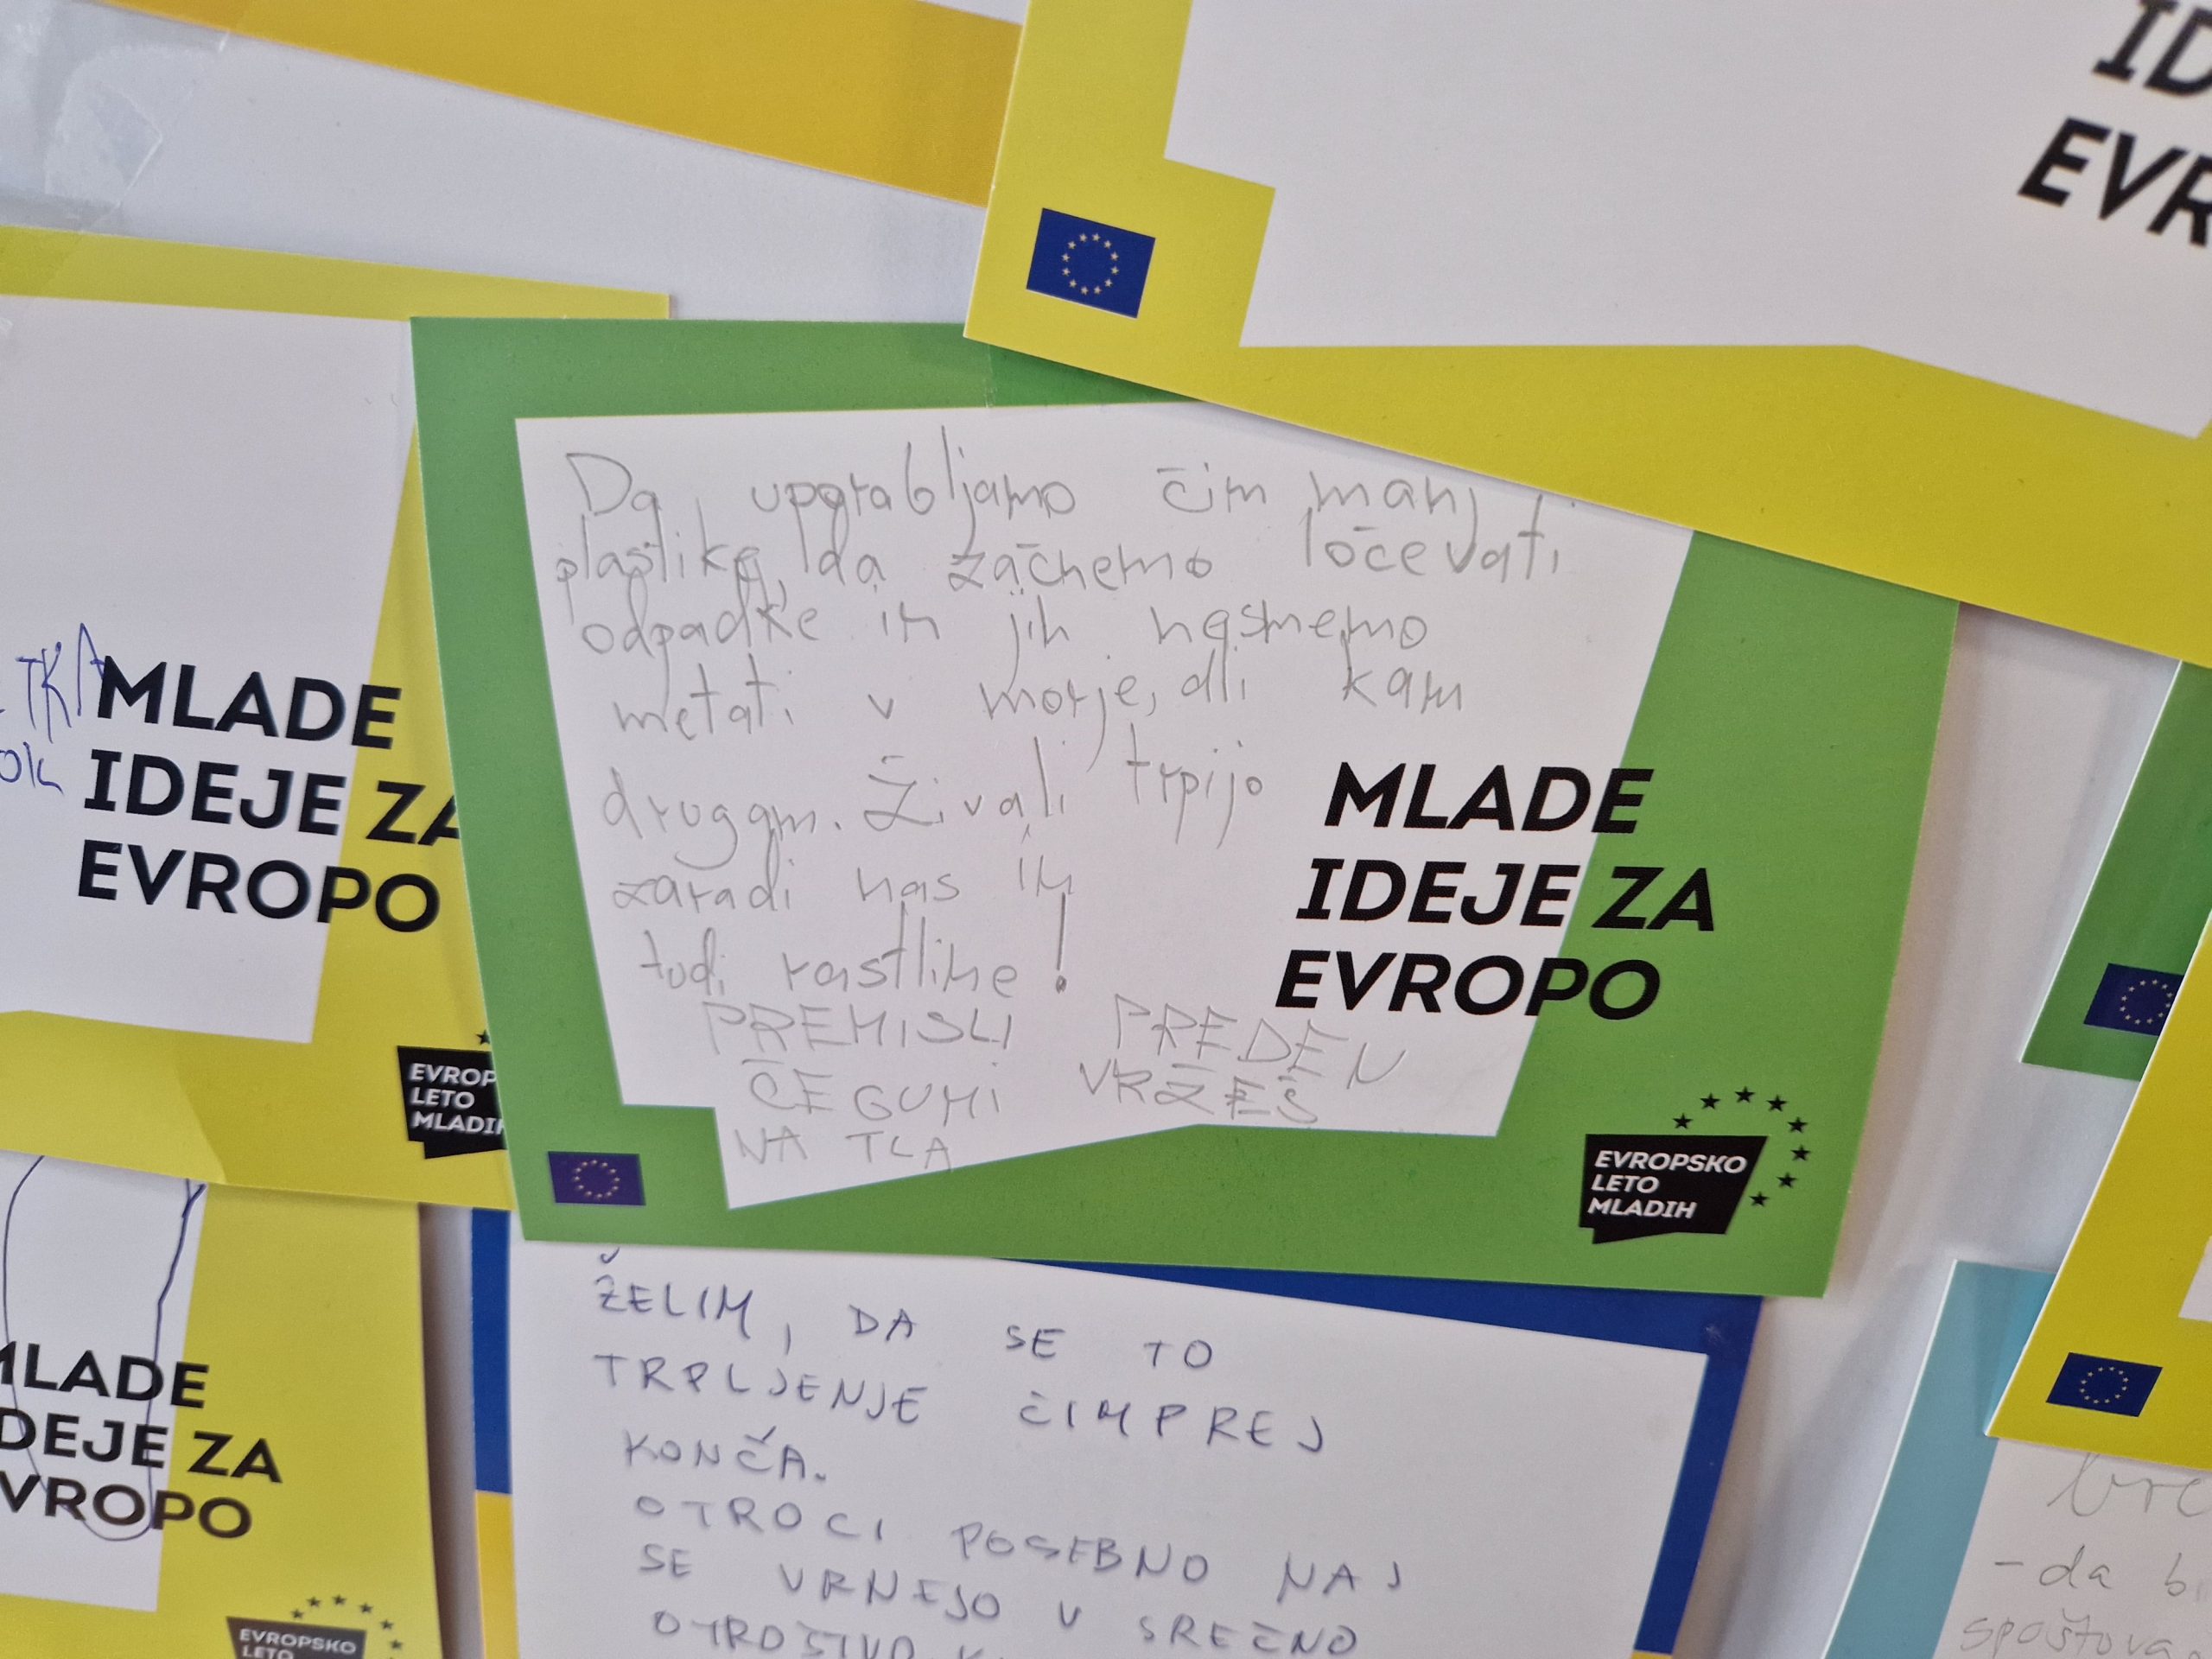 ID
EVR
Da uporabljamo čim manj
plastike, da začnemo ločevati
odpadke in jih nesmemo
metati v morje, ali kam
drugam. Živali trpijo
zaradi nas in
tudi rastline!
PREMISLI PREDEN
ČEGUMI VRŽEŠ
NA TLA
MLADE
IDEJE ZA
EVROPO
EVROPSKO
LETO
MLADIH
TKA
MLADE
IDEJE ZA
EVROPO
EVROP
LETO
MLADIH
ŽELIM, DA SE TO
TRPLJENJE ČIMPREJ
KONČA.
OTROCI POSEBNO NAJ
SE VRNEJO V SREČNO
OTROŠTVO
MLADE
DEJE ZA
VROPO
EVROPSKO
LETO
- da bi
spoštova